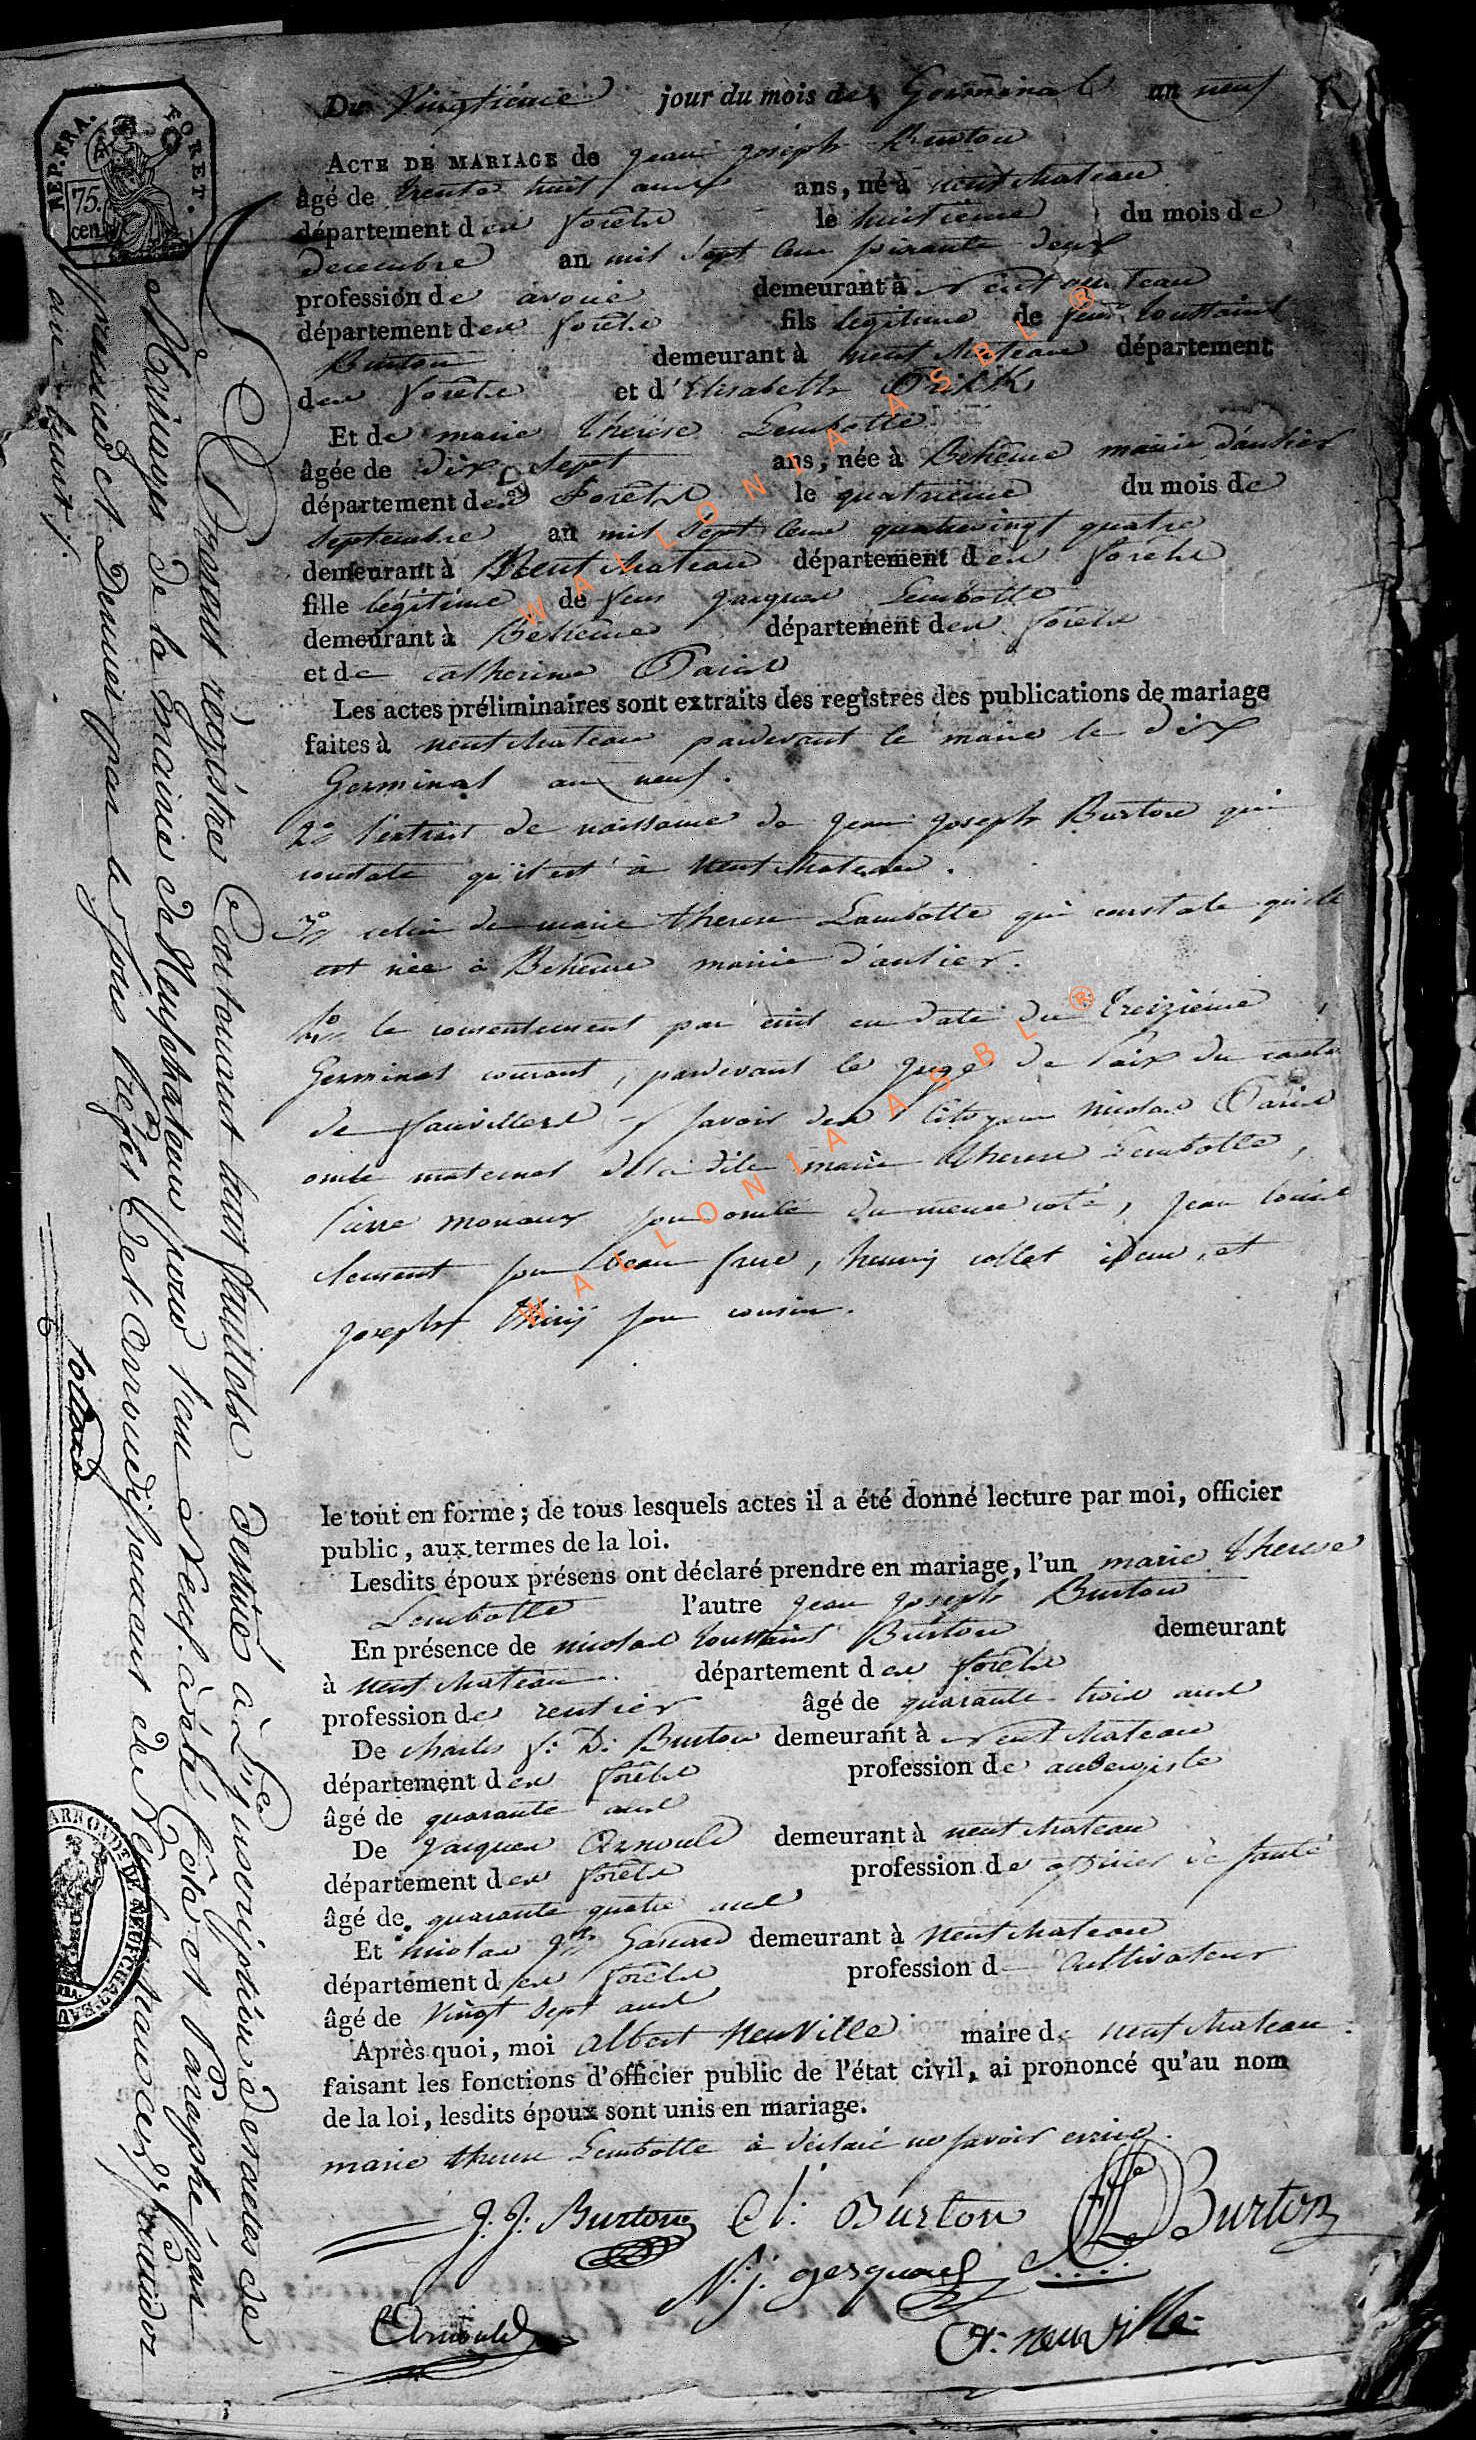 REP. FRA.
FORET.
75.
cen.
Du Vingtieme jour du mois de Germinal an neuf
ACTE DE MARIAGE de jean joseph Burton
âgé de trente huit ans ans, né à neufchateau
département des forêts le huitieme du mois de
decembre an mil sept cent soixante deux
profession de avoué demeurant à Neufchateau
département des forêts fils legitime de feu toussaint
Burton demeurant à neufchateau département
des forêts et d'Elisabeth
Et de marie thérèse Lambotte
âgée de dix sept ans, née à Behême mairie d'anlier
département des Forêts le quatrieme du mois de
septembre an mil sept cent quatrevingt quatre
demeurant à Neufchateau département des forêts
fille légitime de feu jacques Lambotte
demeurant à Behême département des forêts
et de catherine
Les actes préliminaires sont extraits des registres des publications de mariage
faites à neufchateau pardevant le maire le dix
Germinal an neuf.
2º l'extrait de naissance de jean joseph Burton qui
constate qu'il est à neufchateau.
3º celui de marie therese Lambotte qui constate qu'elle
est née à Behême mairie d'anlier.
4º le consentement par en date du treizième
Germinal courant, pardevant le juge de Paix du canton
de fauvillers, savoir des citoyens nicolas
oncle maternel de la dite marie therese Lambotte,
Pierre monaux son oncle du meme coté, jean louis
clement son beau frere, henry collet idem, et
joseph thiry son cousin.
le tout en forme; de tous lesquels actes il a été donné lecture par moi, officier
public, aux termes de la loi.
Lesdits époux présens ont déclaré prendre en mariage, l'un marie therese
Lambotte l'autre jean joseph Burton
En présence de nicolas toussaint Burton demeurant
à neufchateau département des forêts
profession de rentier âgé de quarante trois ans
De charles f. D. Burton demeurant à Neufchateau
département des forêts profession de aubergiste
âgé de quarante ans
De jacques Arnould demeurant à neufchateau
département des forêts profession de officier de santé
âgé de quarante quatre ans
Et nicolas demeurant à neufchateau
département des forêts profession d cultivateur
âgé de vingt sept ans
Après quoi, moi albert neuville maire de neufchateau
faisant les fonctions d'officier public de l'état civil, ai prononcé qu'au nom
de la loi, lesdits époux sont unis en mariage.
marie therese Lambotte à déclaré ne savoir ecrire.
J. J. Burton Burton Burton
Arnould A. neuville
Le Présent régistre Contenant huit feuillets destiné à L'inscription des actes de
Mariages de la mairie de Neufchateau pour l'an Neuf, a été Cotté et Paraphé par
premier et Dernier par le sous Préfet de l'arrondissement de Neufchateau
ARROND. DE NEUFCHATEAU
WALLONIA ASBL ®
WALLONIA ASBL ®